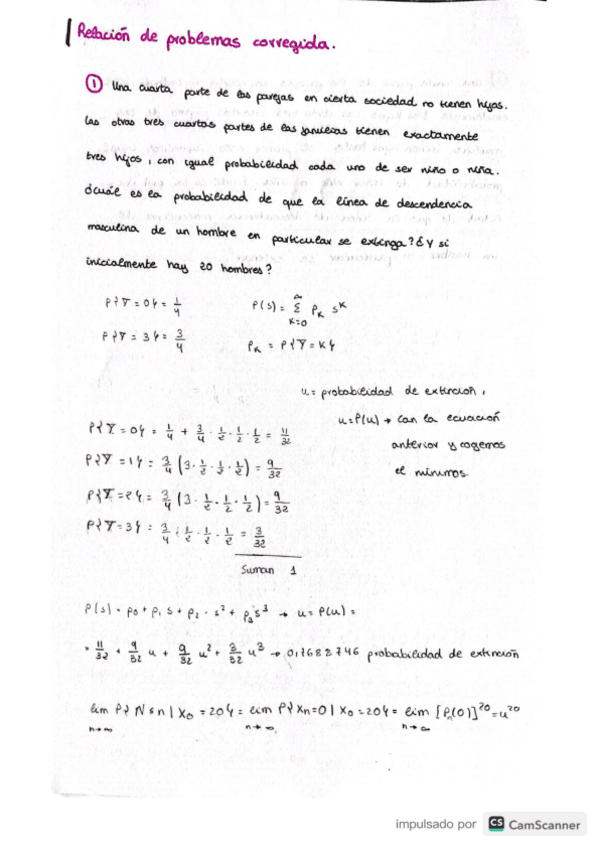 Relación de problemas corregida.
① Una cuarta parte de las parejas en cierta sociedad no tienen hijos.
Las otras tres cuartas partes de las familias tienen exactamente
tres hijos, con igual probabilidad cada uno de ser niño o niña.
¿Cuál es la probabilidad de que la línea de descendencia
masculina de un hombre en particular se extinga? ¿Y si
inicialmente hay 20 hombres?
P{T=0}= 1/4
P(s)= ∞ Σ K=0 P_K s^K
P{T=3}= 3/4
P_K = P{T=K}
u= probabilidad de extinción,
u=P(u) → con la ecuación
anterior y cogemos
el mínimos.
P{T=0}= 1/4 + 3/4 · 1/2 · 1/2 · 1/2 = 11/32
P{T=1}= 3/4 (3 · 1/2 · 1/2 · 1/2) = 9/32
P{T=2}= 3/4 (3 · 1/2 · 1/2 · 1/2) = 9/32
P{T=3}= 3/4 · 1/2 · 1/2 · 1/2 = 3/32
Suman 1
P(s) = p0 + p1 s + p2 · s² + p3 s³ → u = P(u) =
= 11/32 + 9/32 u + 9/32 u² + 3/32 u³ → 0,7688746 probabilidad de extinción
lim n→∞ P{N≤n | X0=20} = lim n→∞ P{Xn=0 | X0=20} = lim n→∞ [Pn(0)]^20 = u^20
impulsado por CS CamScanner